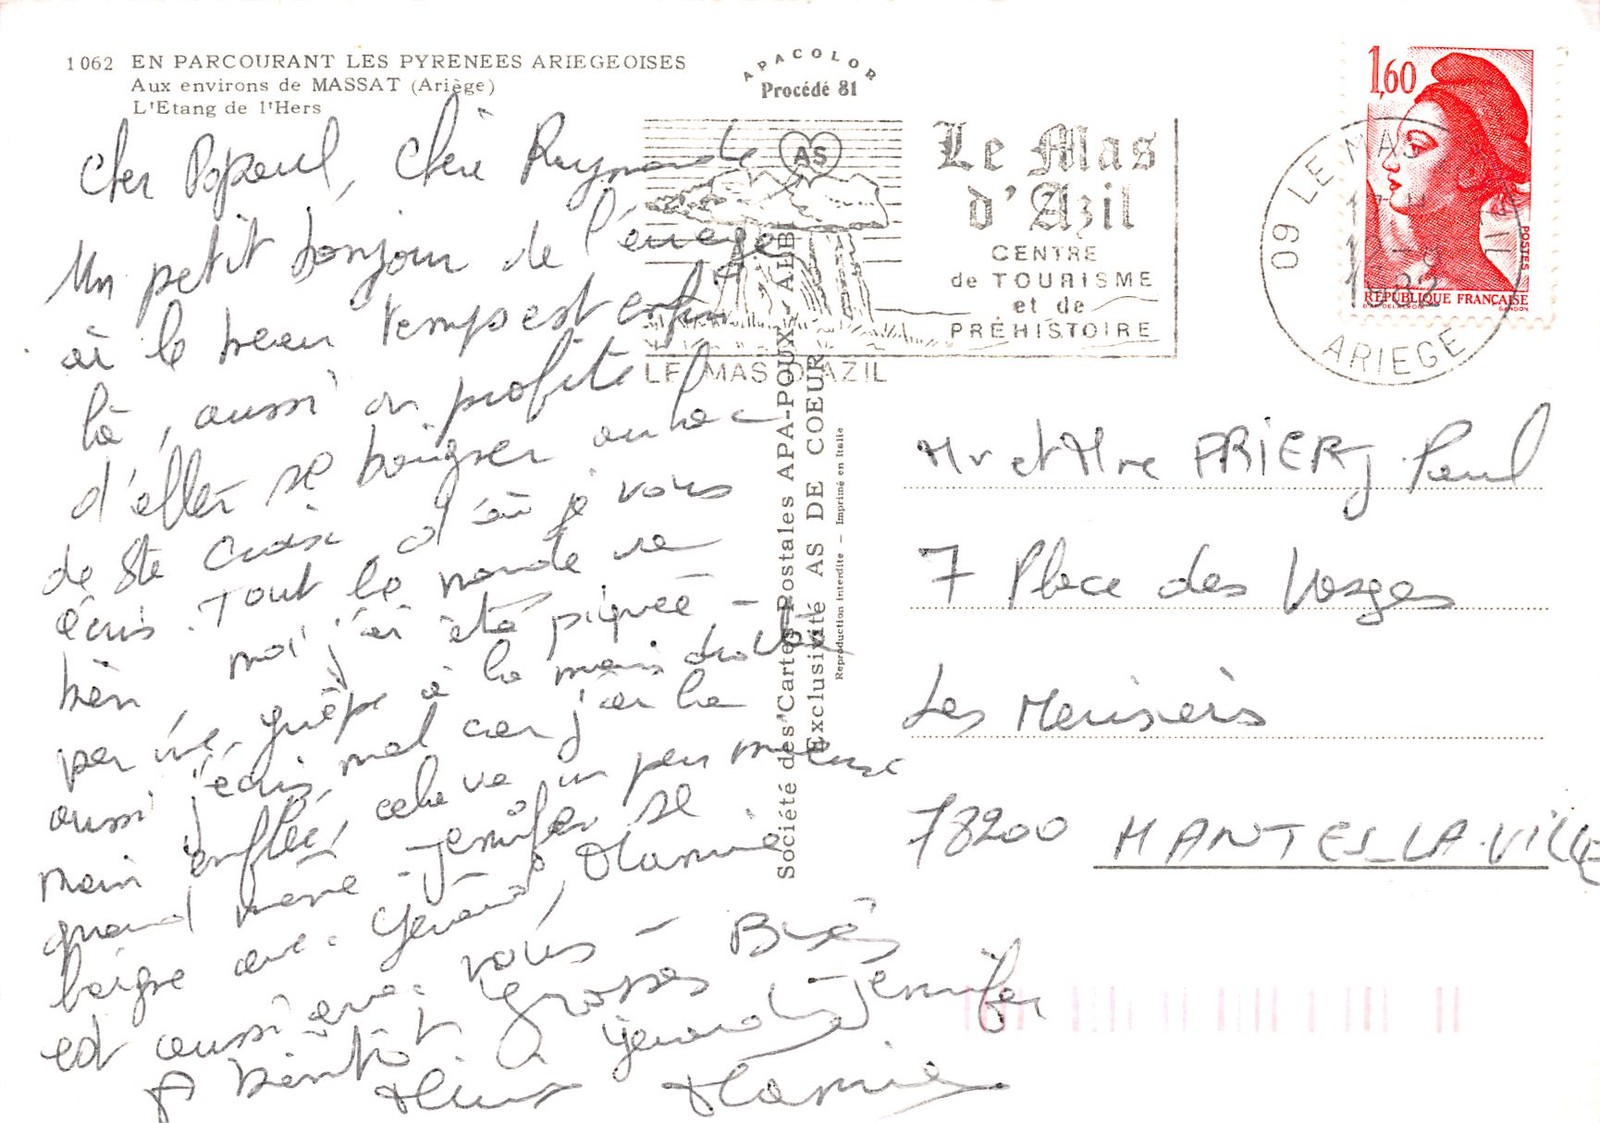 1062 EN PARCOURANT LES PYRENEES ARIEGEOISES
Aux environs de MASSAT (Ariège)
L'Etang de l'Hers
APACOLOR
Procédé 81
Cher Popaul, Chère Raymonde
Un petit bonjour de l'ariège
où le beau temps est enfin
là, aussi on profite
d'aller se baigner au lac
de Ste Croix d'où je vous
écris. Tout le monde va
bien, moi j'ai été piquée
par une guêpe à la main droite
aussi j'écris mal car j'ai la
main enflée, cela va un peu mieux
quand même - Jennifer se
baigne avec Gérard, Mamie
est aussi avec nous - Bises
A bientôt Grosses
Gérard Jennifer
Mamie
Société des Cartes Postales APA-POUX - ALBI
Exclusivité AS DE COEUR
Reproduction Interdite - Imprimé en Italie
AS
Le Mas
d'Azil
CENTRE
de TOURISME
et de
PRÉHISTOIRE
LE MAS D'AZIL
09 LE MAS D'AZIL
ARIEGE
1,60
POSTES
RÉPUBLIQUE FRANÇAISE
GANDON
Mr et Mme PRIERJ Paul
7 Place des Vosges
Les Merisiers
78200 MANTES-LA-VILLE